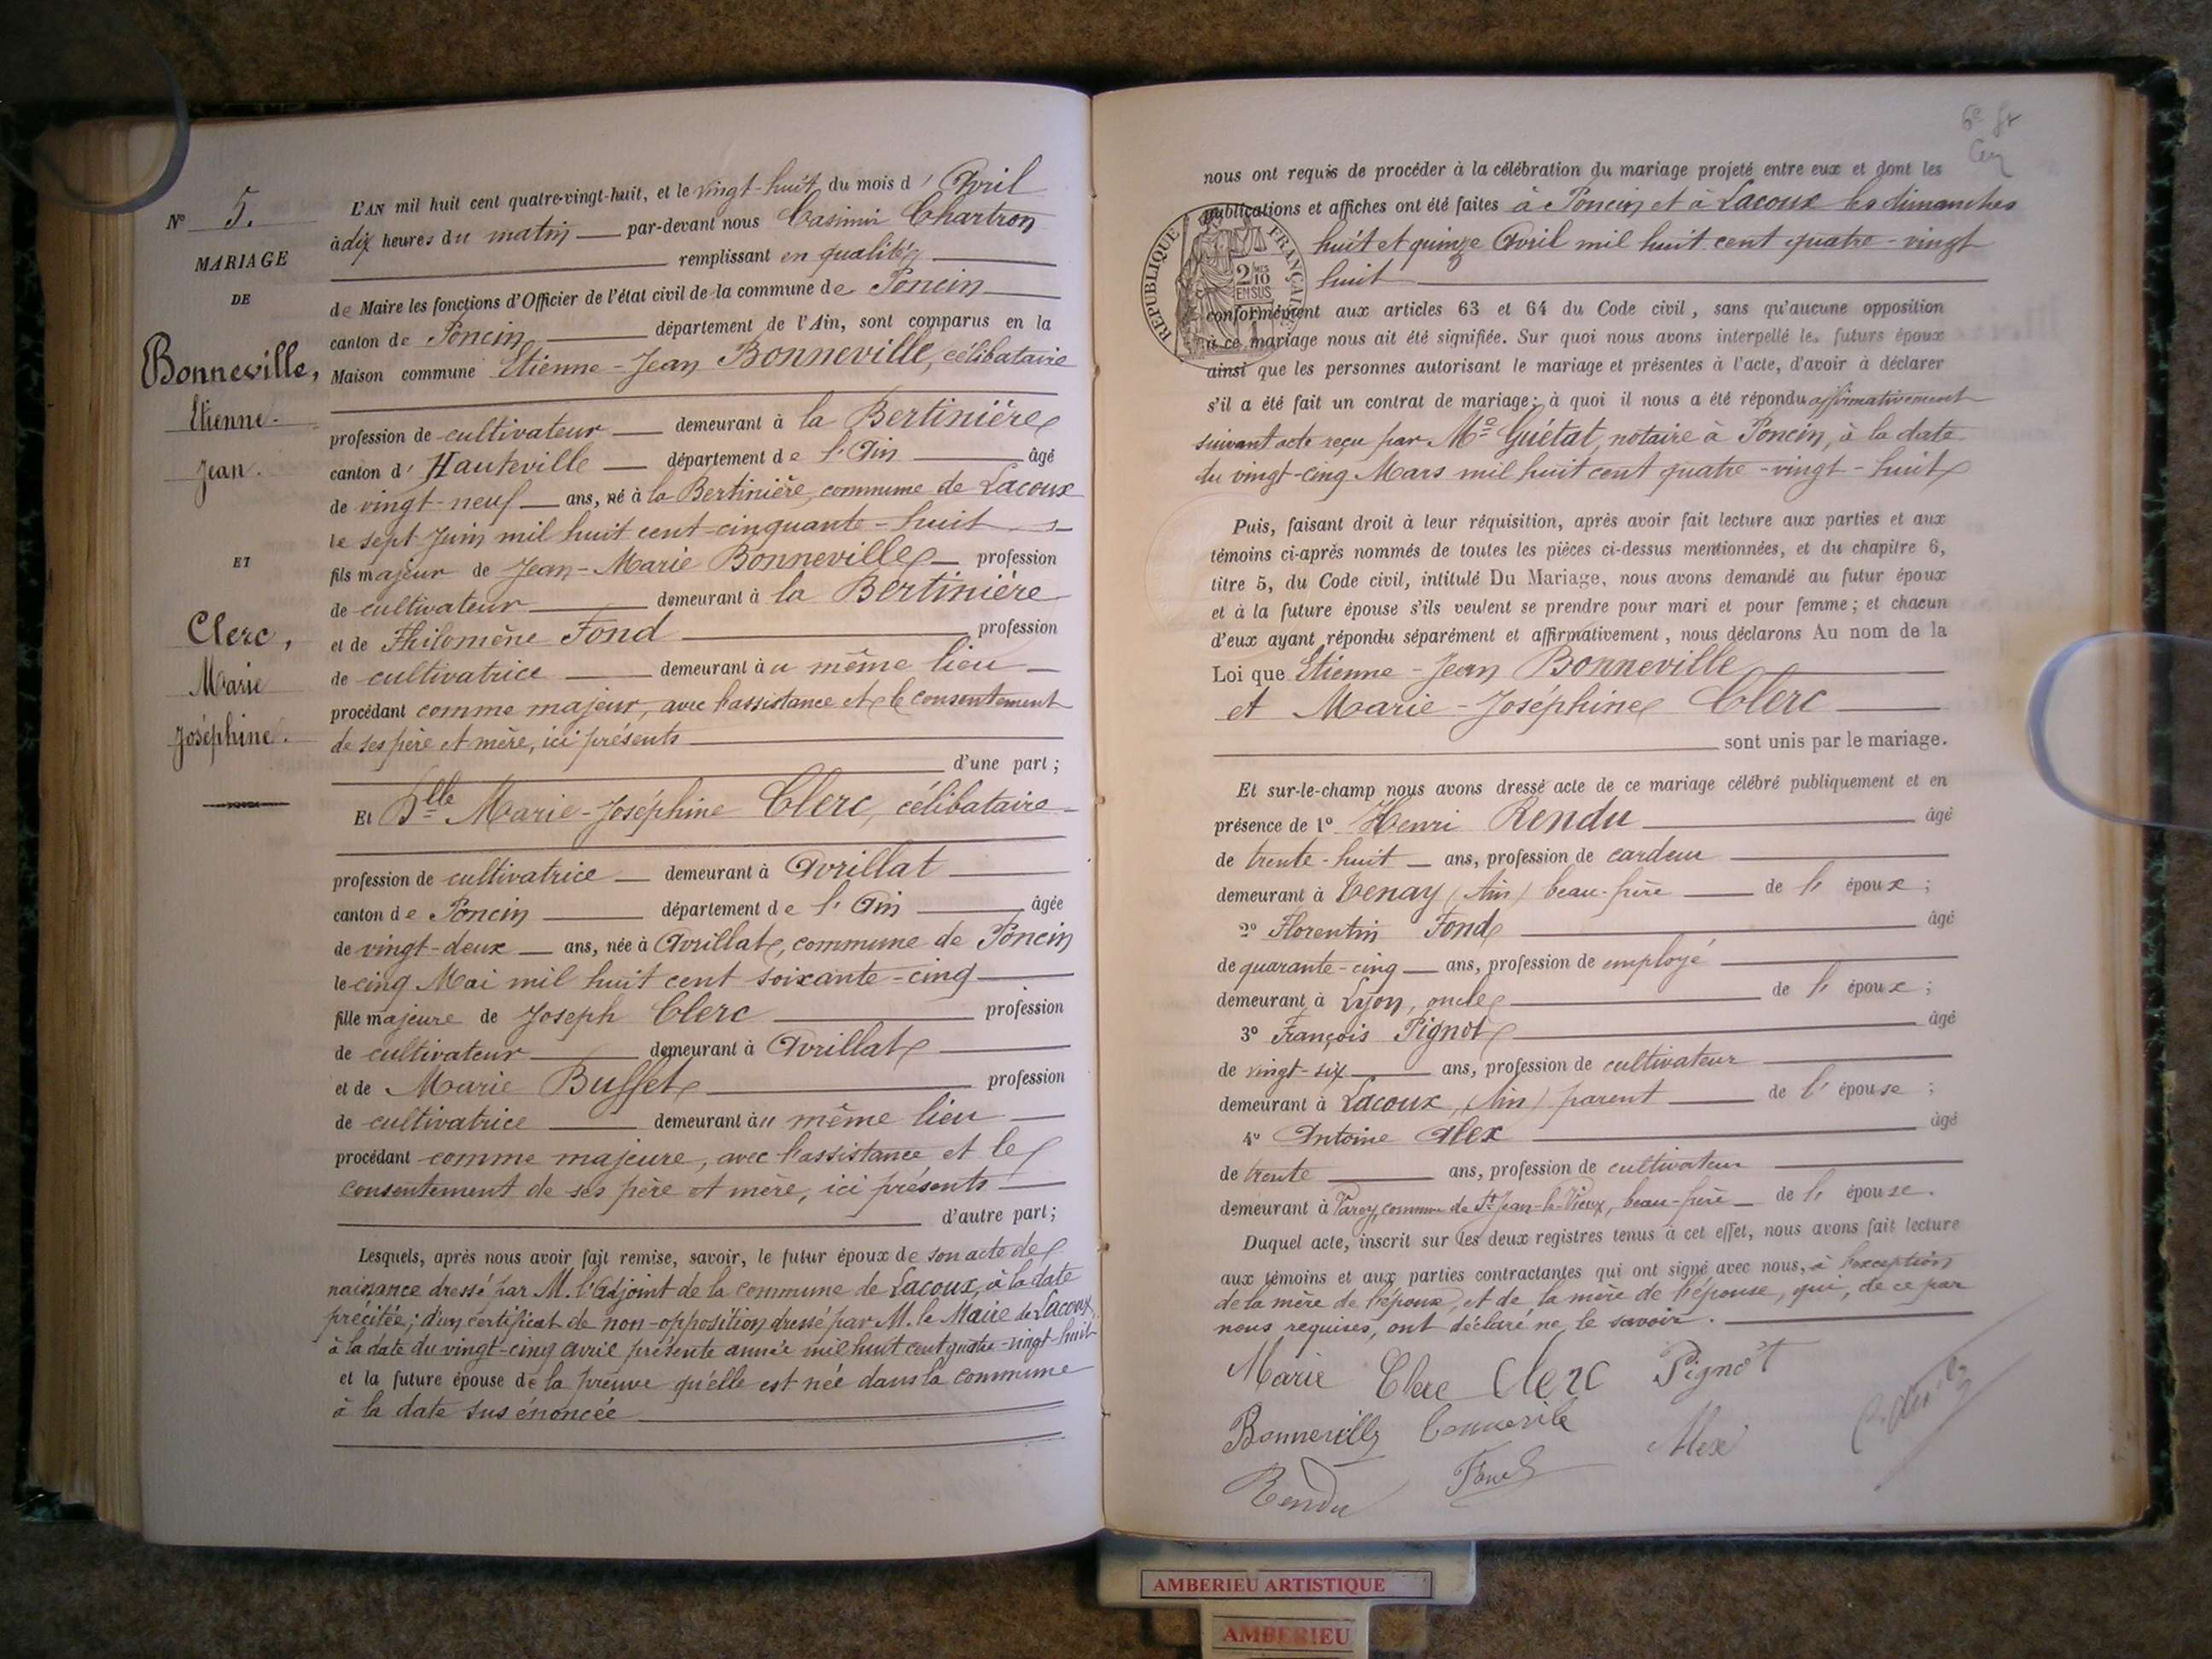 N° 5.
MARIAGE
DE
Bonneville,
Etienne-
Jean.
ET
Clerc,
Marie
Joséphine.
L'AN mil huit cent quatre-vingt-huit, et le vingt-huit du mois d'Avril
à dix heures du matin par-devant nous Casimir Chartron
remplissant en qualité
de Maire les fonctions d'Officier de l'état civil de la commune de Poncin
canton de Poncin département de l'Ain, sont comparus en la
Maison commune Etienne-Jean Bonneville, célibataire
profession de cultivateur demeurant à la Bertinière
canton d'Hauteville département de l'Ain âgé
de vingt-neuf ans, né à la Bertinière, commune de Lacoux
le sept Juin mil huit cent cinquante-huit
fils majeur de Jean-Marie Bonneville profession
de cultivateur demeurant à la Bertinière
et de Philomène Fond profession
de cultivatrice demeurant au même lieu
procédant comme majeur, avec l'assistance et le consentement
de ses père et mère, ici présents
d'une part;
Et Dlle Marie-Joséphine Clerc, célibataire
profession de cultivatrice demeurant à Avrillat
canton de Poncin département de l'Ain âgée
de vingt-deux ans, née à Avrillat, commune de Poncin
le cinq Mai mil huit cent soixante-cinq
fille majeure de Joseph Clerc profession
de cultivateur demeurant à Avrillat
et de Marie Buffet profession
de cultivatrice demeurant au même lieu
procédant comme majeure, avec l'assistance et le
consentement de ses père et mère, ici présents
d'autre part;
Lesquels, après nous avoir fait remise, savoir, le futur époux de son acte de
naissance dressé par M. l'Adjoint de la commune de Lacoux, à la date
précitée; d'un certificat de non-opposition dressé par M. le Maire de Lacoux,
à la date du vingt-cinq avril présente année mil huit cent quatre-vingt-huit
et la future épouse de la preuve qu'elle est née dans la commune
à la date sus énoncée
nous ont requis de procéder à la célébration du mariage projeté entre eux et dont les
publications et affiches ont été faites à Poncin et à Lacoux les dimanches
huit et quinze Avril mil huit cent quatre-vingt
huit
RÉPUBLIQUE FRANÇAISE
2/10
EN SUS
conformément aux articles 63 et 64 du Code civil, sans qu'aucune opposition
à ce mariage nous ait été signifiée. Sur quoi nous avons interpellé les futurs époux
ainsi que les personnes autorisant le mariage et présentes à l'acte, d'avoir à déclarer
s'il a été fait un contrat de mariage; à quoi il nous a été répondu affirmativement
suivant acte reçu par Me Guétat, notaire à Poncin, à la date
du vingt-cinq Mars mil huit cent quatre-vingt-huit
Puis, faisant droit à leur réquisition, après avoir fait lecture aux parties et aux
témoins ci-après nommés de toutes les pièces ci-dessus mentionnées, et du chapitre 6,
titre 5, du Code civil, intitulé Du Mariage, nous avons demandé au futur époux
et à la future épouse s'ils veulent se prendre pour mari et pour femme; et chacun
d'eux ayant répondu séparément et affirmativement, nous déclarons Au nom de la
Loi que Etienne-Jean Bonneville
et Marie-Joséphine Clerc
sont unis par le mariage.
Et sur-le-champ nous avons dressé acte de ce mariage célébré publiquement et en
présence de 1° Henri Rendu âgé
de trente-huit ans, profession de cardeur
demeurant à Tenay (Ain) beau-frère de l'époux;
2° Florentin Fond âgé
de quarante-cinq ans, profession de employé
demeurant à Lyon, oncle de l'époux;
3° François Pignot âgé
de vingt-six ans, profession de cultivateur
demeurant à Lacoux, (Ain) parent de l'épouse;
4° Antoine Alex âgé
de trente ans, profession de cultivateur
demeurant à Varey, commune de St Jean-le-Vieux, beau-frère de l'épouse.
Duquel acte, inscrit sur les deux registres tenus à cet effet, nous avons fait lecture
aux témoins et aux parties contractantes qui ont signé avec nous, à l'exception
de la mère de l'époux, et de la mère de l'épouse, qui, de ce par
nous requises, ont déclaré ne le savoir.
Marie Clerc Clerc Pignot
Bonneville Bonneville Alex
Rendu Fond
AMBERIEU ARTISTIQUE
AMBERIEU